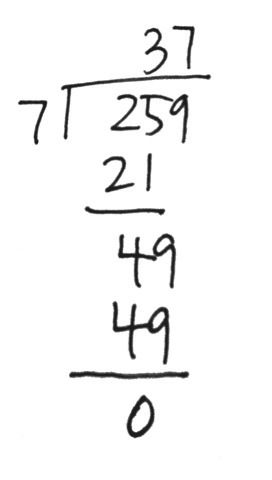 37
7 259
21
49
49
0